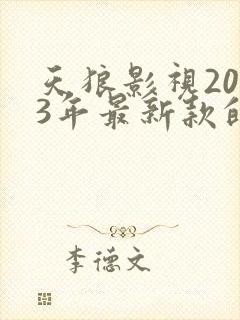 天狼影視20
3年最新款的
李德文